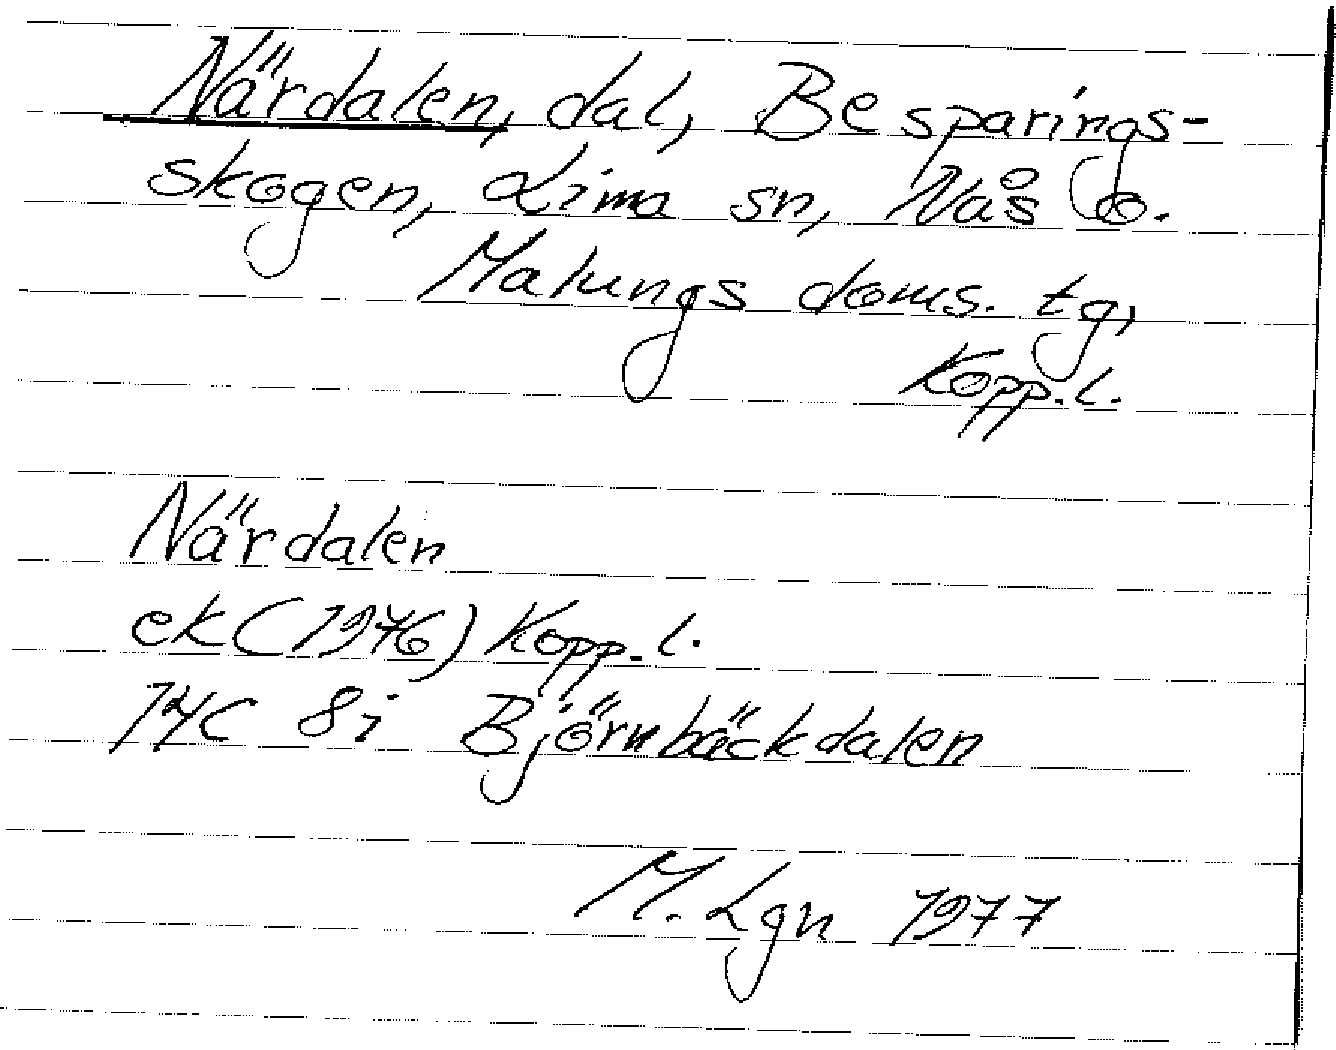 Närdalen, dal, Besparings-
skogen, Lima sn, Nås o.
Malungs doms. tg,
Kopp. l.
Närdalen
ek (1976) Kopp. l.
14C 8i Björnbäckdalen
M. Lgn 1977